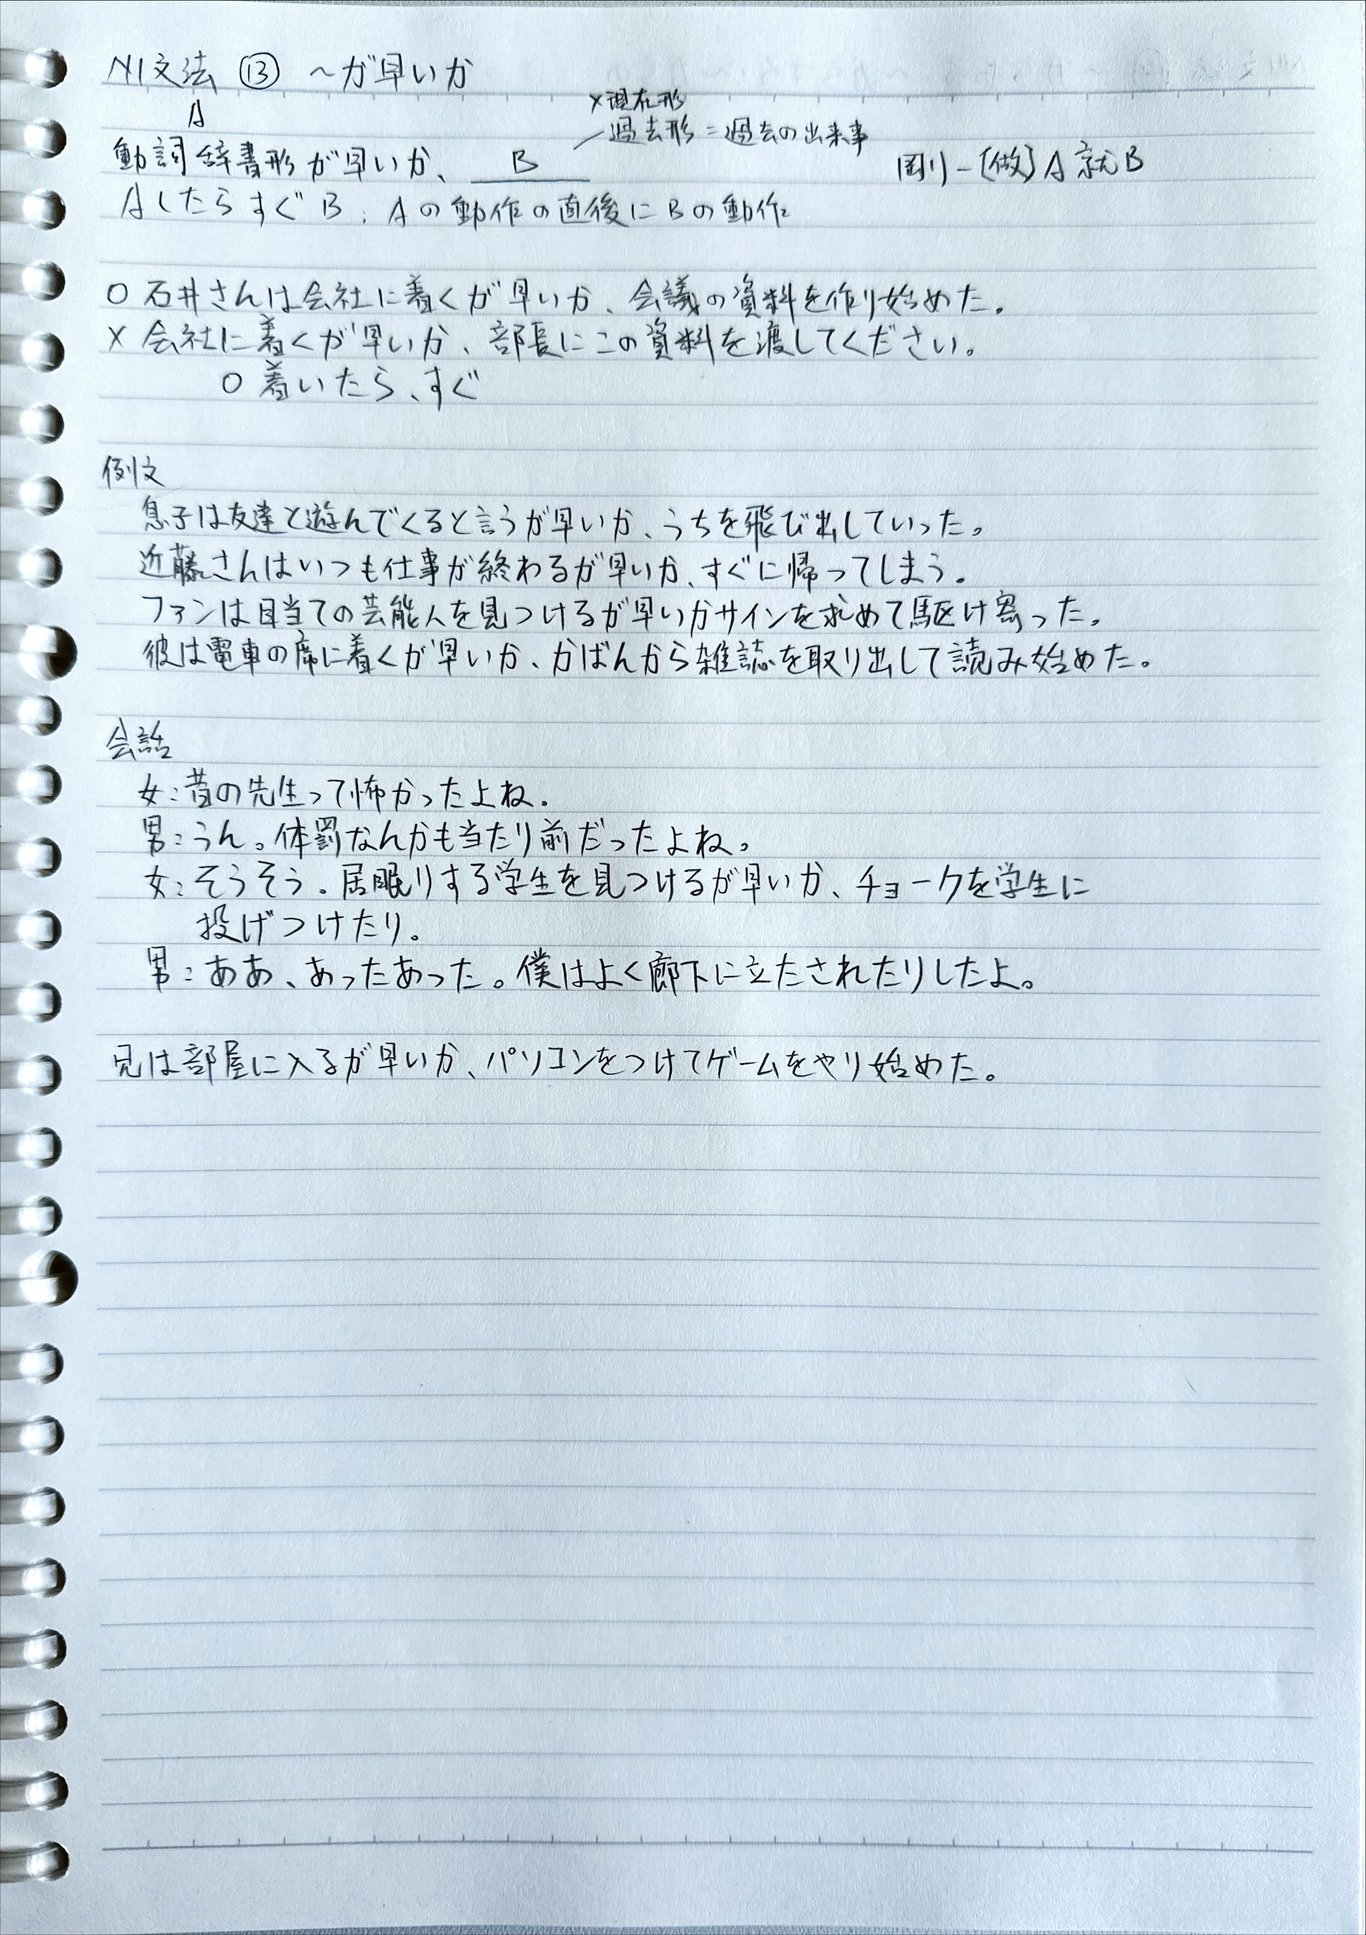 N1文法 ⑬ 〜が早いか
A
×現在形
過去形=過去の出来事
動詞辞書形が早いか、 B
刚一〔做〕A就B
AしたらすぐB:Aの動作の直後にBの動作
○ 石井さんは会社に着くが早いか、会議の資料を作り始めた。
× 会社に着くが早いか、部長にこの資料を渡してください。
○ 着いたら、すぐ
例文
息子は友達と遊んでくると言うが早いか、うちを飛び出していった。
近藤さんはいつも仕事が終わるが早いか、すぐに帰ってしまう。
ファンは目当ての芸能人を見つけるが早いかサインを求めて駆け寄った。
彼は電車の席に着くが早いか、かばんから雑誌を取り出して読み始めた。
会話
女:昔の先生って怖かったよね。
男:うん。体罰なんかも当たり前だったよね。
女:そうそう。居眠りする学生を見つけるが早いか、チョークを学生に
投げつけたり。
男:ああ、あったあった。僕はよく廊下に立たされたりしたよ。
兄は部屋に入るが早いか、パソコンをつけてゲームをやり始めた。